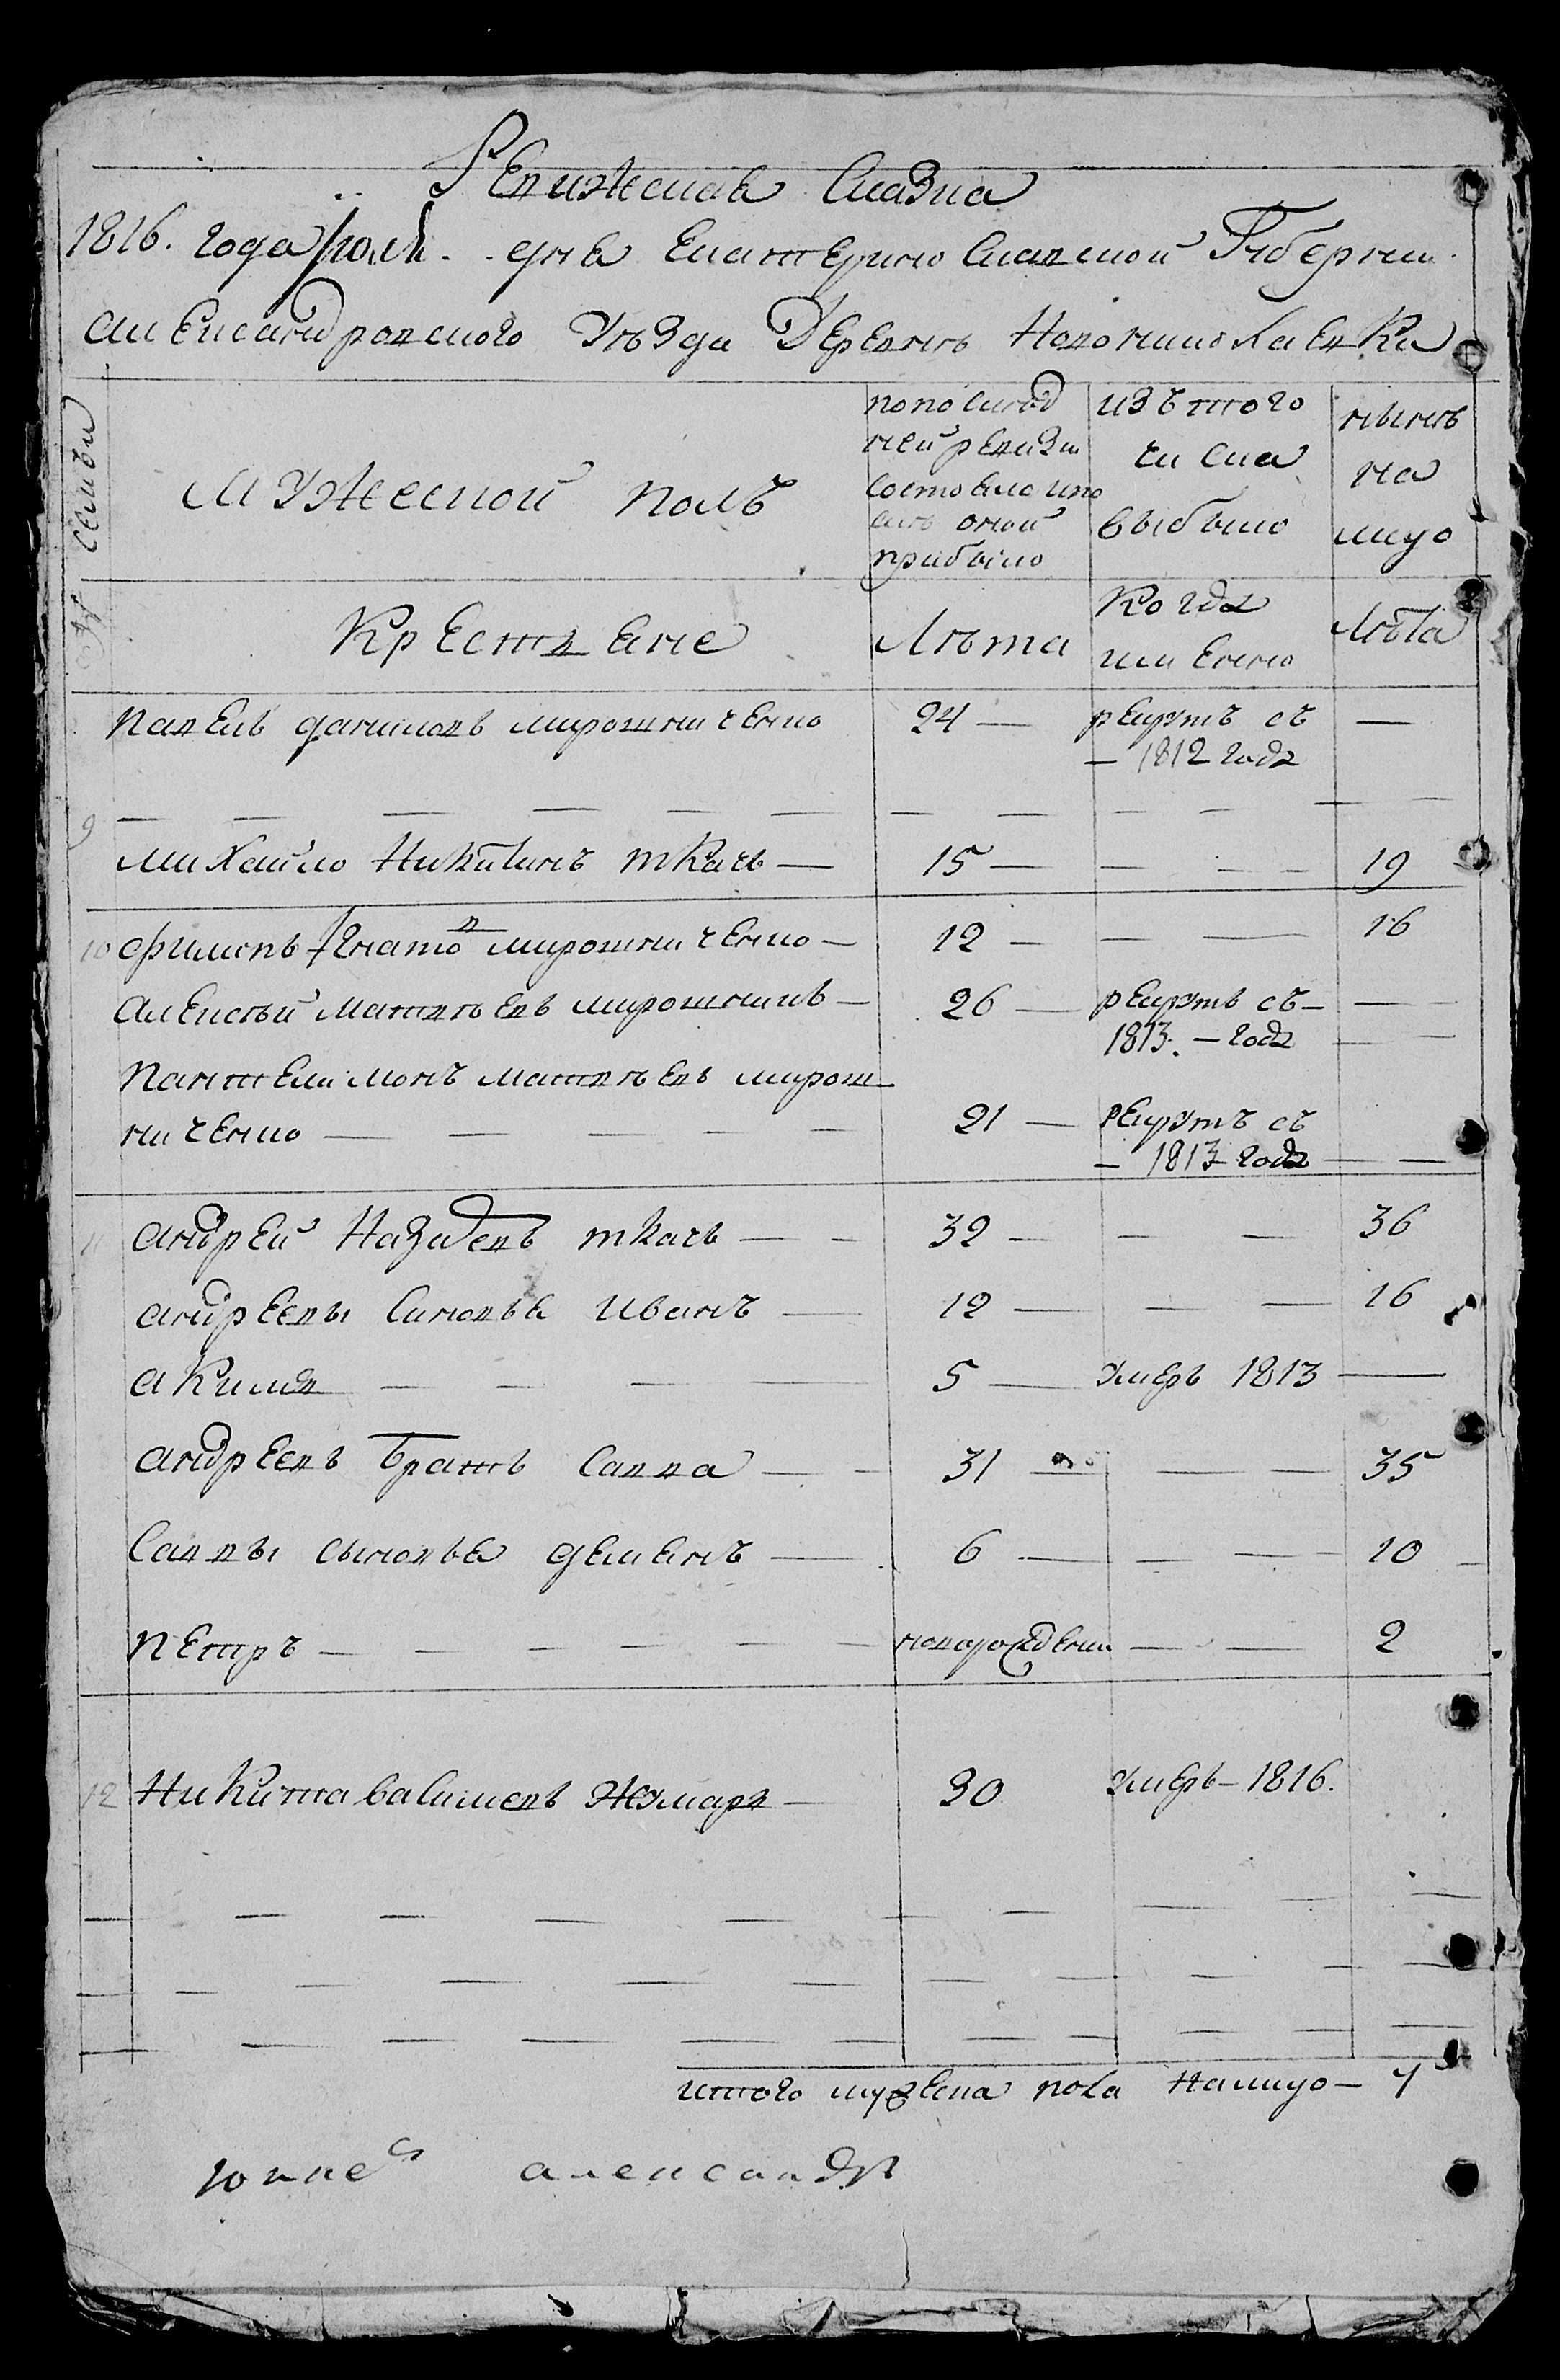 Ревижская Сказка
1816. года Юля дня Екатеринославской Губернии
александровского уѣзда Деревнѣ Новониколаевки
№ семьи
мужеской полъ
пополед
ней ревизіи
состояло ипо
слѣ оной
прибыло
изъ того
числа
выбыло
нынѣ
на
лицо
Крестяне
Лѣта
Когда
именно
Лѣта
павелъ даниловъ мирошниченко 24 — рекрутъ съ —
— 1812 года
9
михайло Никитинъ ткачь — 15 — — 19
10 филипъ Игнатов мирошниченко — 12 — — 16
алексѣй матвѣевъ мирошникъ — 26 — рекрутъ съ — —
1813. — года
пантелимонъ матвѣевъ мирош
ниченко — 21 — рекрутъ съ
— 1813 года —
11 андрей Назаревъ ткачь — 32 — — 36
андреевы синовья иванъ — 12 — — 16
акимъ — 5 — умеръ 1813 —
андреевъ братъ савва — 31 — — 35
саввы сыновья демянъ — 6 — — 10
петръ — новорожденъ — 2
12 Никита васильевъ жмаря — 30 умеръ — 1816.
итого мужеска пола Налицо — 7
александръ